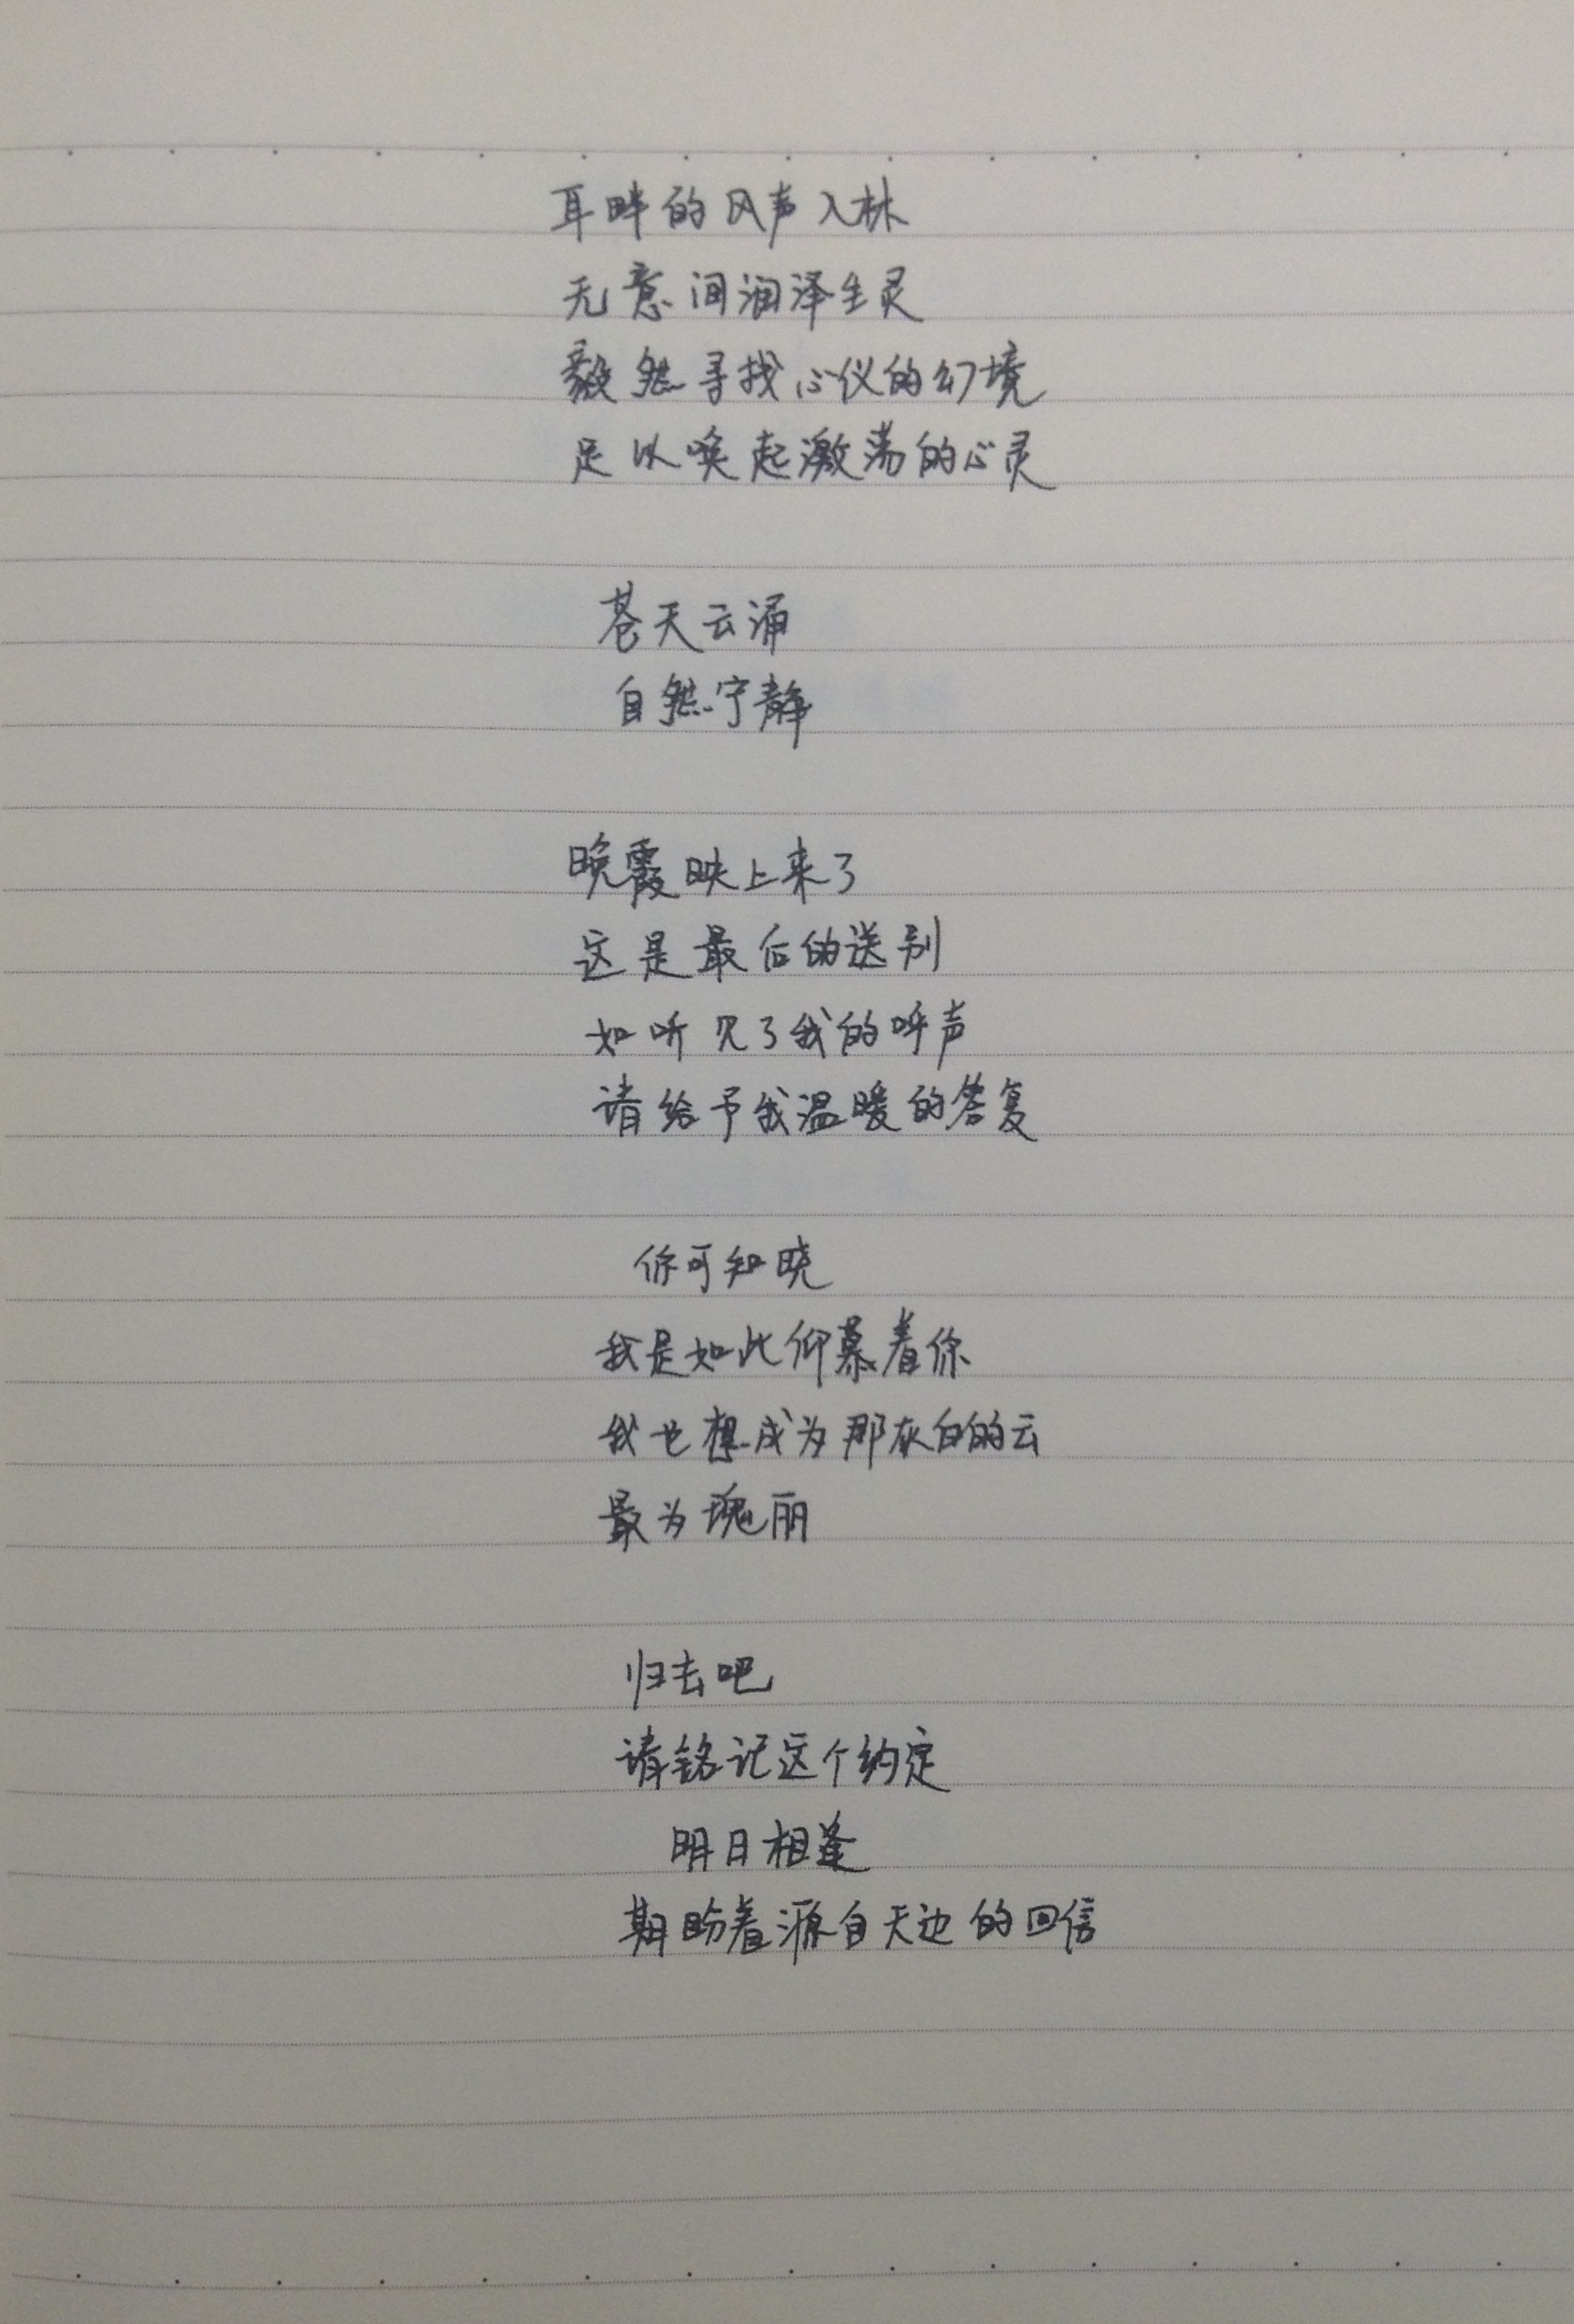 耳畔的风声入林
无意间润泽生灵
毅然寻找心仪的幻境
足以唤起激荡的心灵
苍天云涌
自然宁静
晚霞映上来了
这是最后的送别
如听见了我的呼声
请给予我温暖的答复
你可知晓
我是如此仰慕着你
我也想成为那灰白的云
最为瑰丽
归去吧
请铭记这个约定
明日相逢
期盼着源自天边的回信